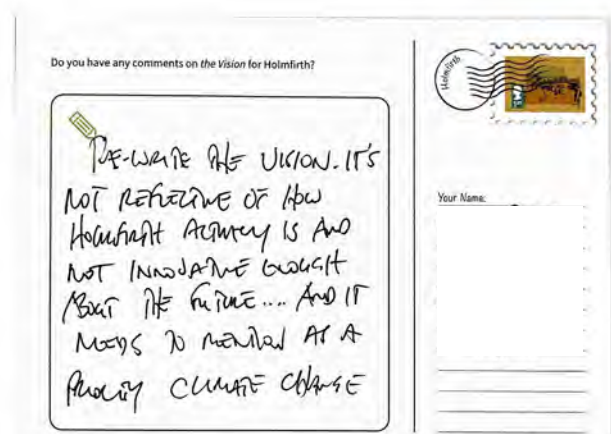 Do you have any comments on the Vision for Holmfirth?
RE-WRITE THE VISION. IT'S
NOT REFLECTIVE OF HOW
HOLMFIRTH ACTUALLY IS AND
NOT INNOVATIVE ENOUGH
ABOUT THE FUTURE.... AND IT
NEEDS TO MENTION AS A
PRIORITY CLIMATE CHANGE
Holmfirth
Your Name: